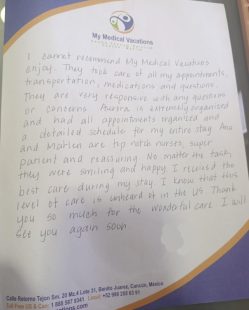 My Medical Vacations
I cannot recommend My Medical Vacations
enjoy. They took care of all my appointments,
transportation, medications and questions.
They are very responsive with any questions
or concerns. is extremely organized
and had all appointments organized and
a detailed schedule for my entire stay. Ana
and Marlen are top notch nurses, super
patient and reassuring. No matter the task,
they were smiling and happy. I received the
best care during my stay. I know that this
level of care is unheard of in the US. Thank
you so much for the wonderful care. I will
see you again soon.
Calle Retorno Tejon Sm. 20 Mz.4 Lote 31, Benito Juarez, Cancún, México.
Toll Free US & Can: 1 888 587